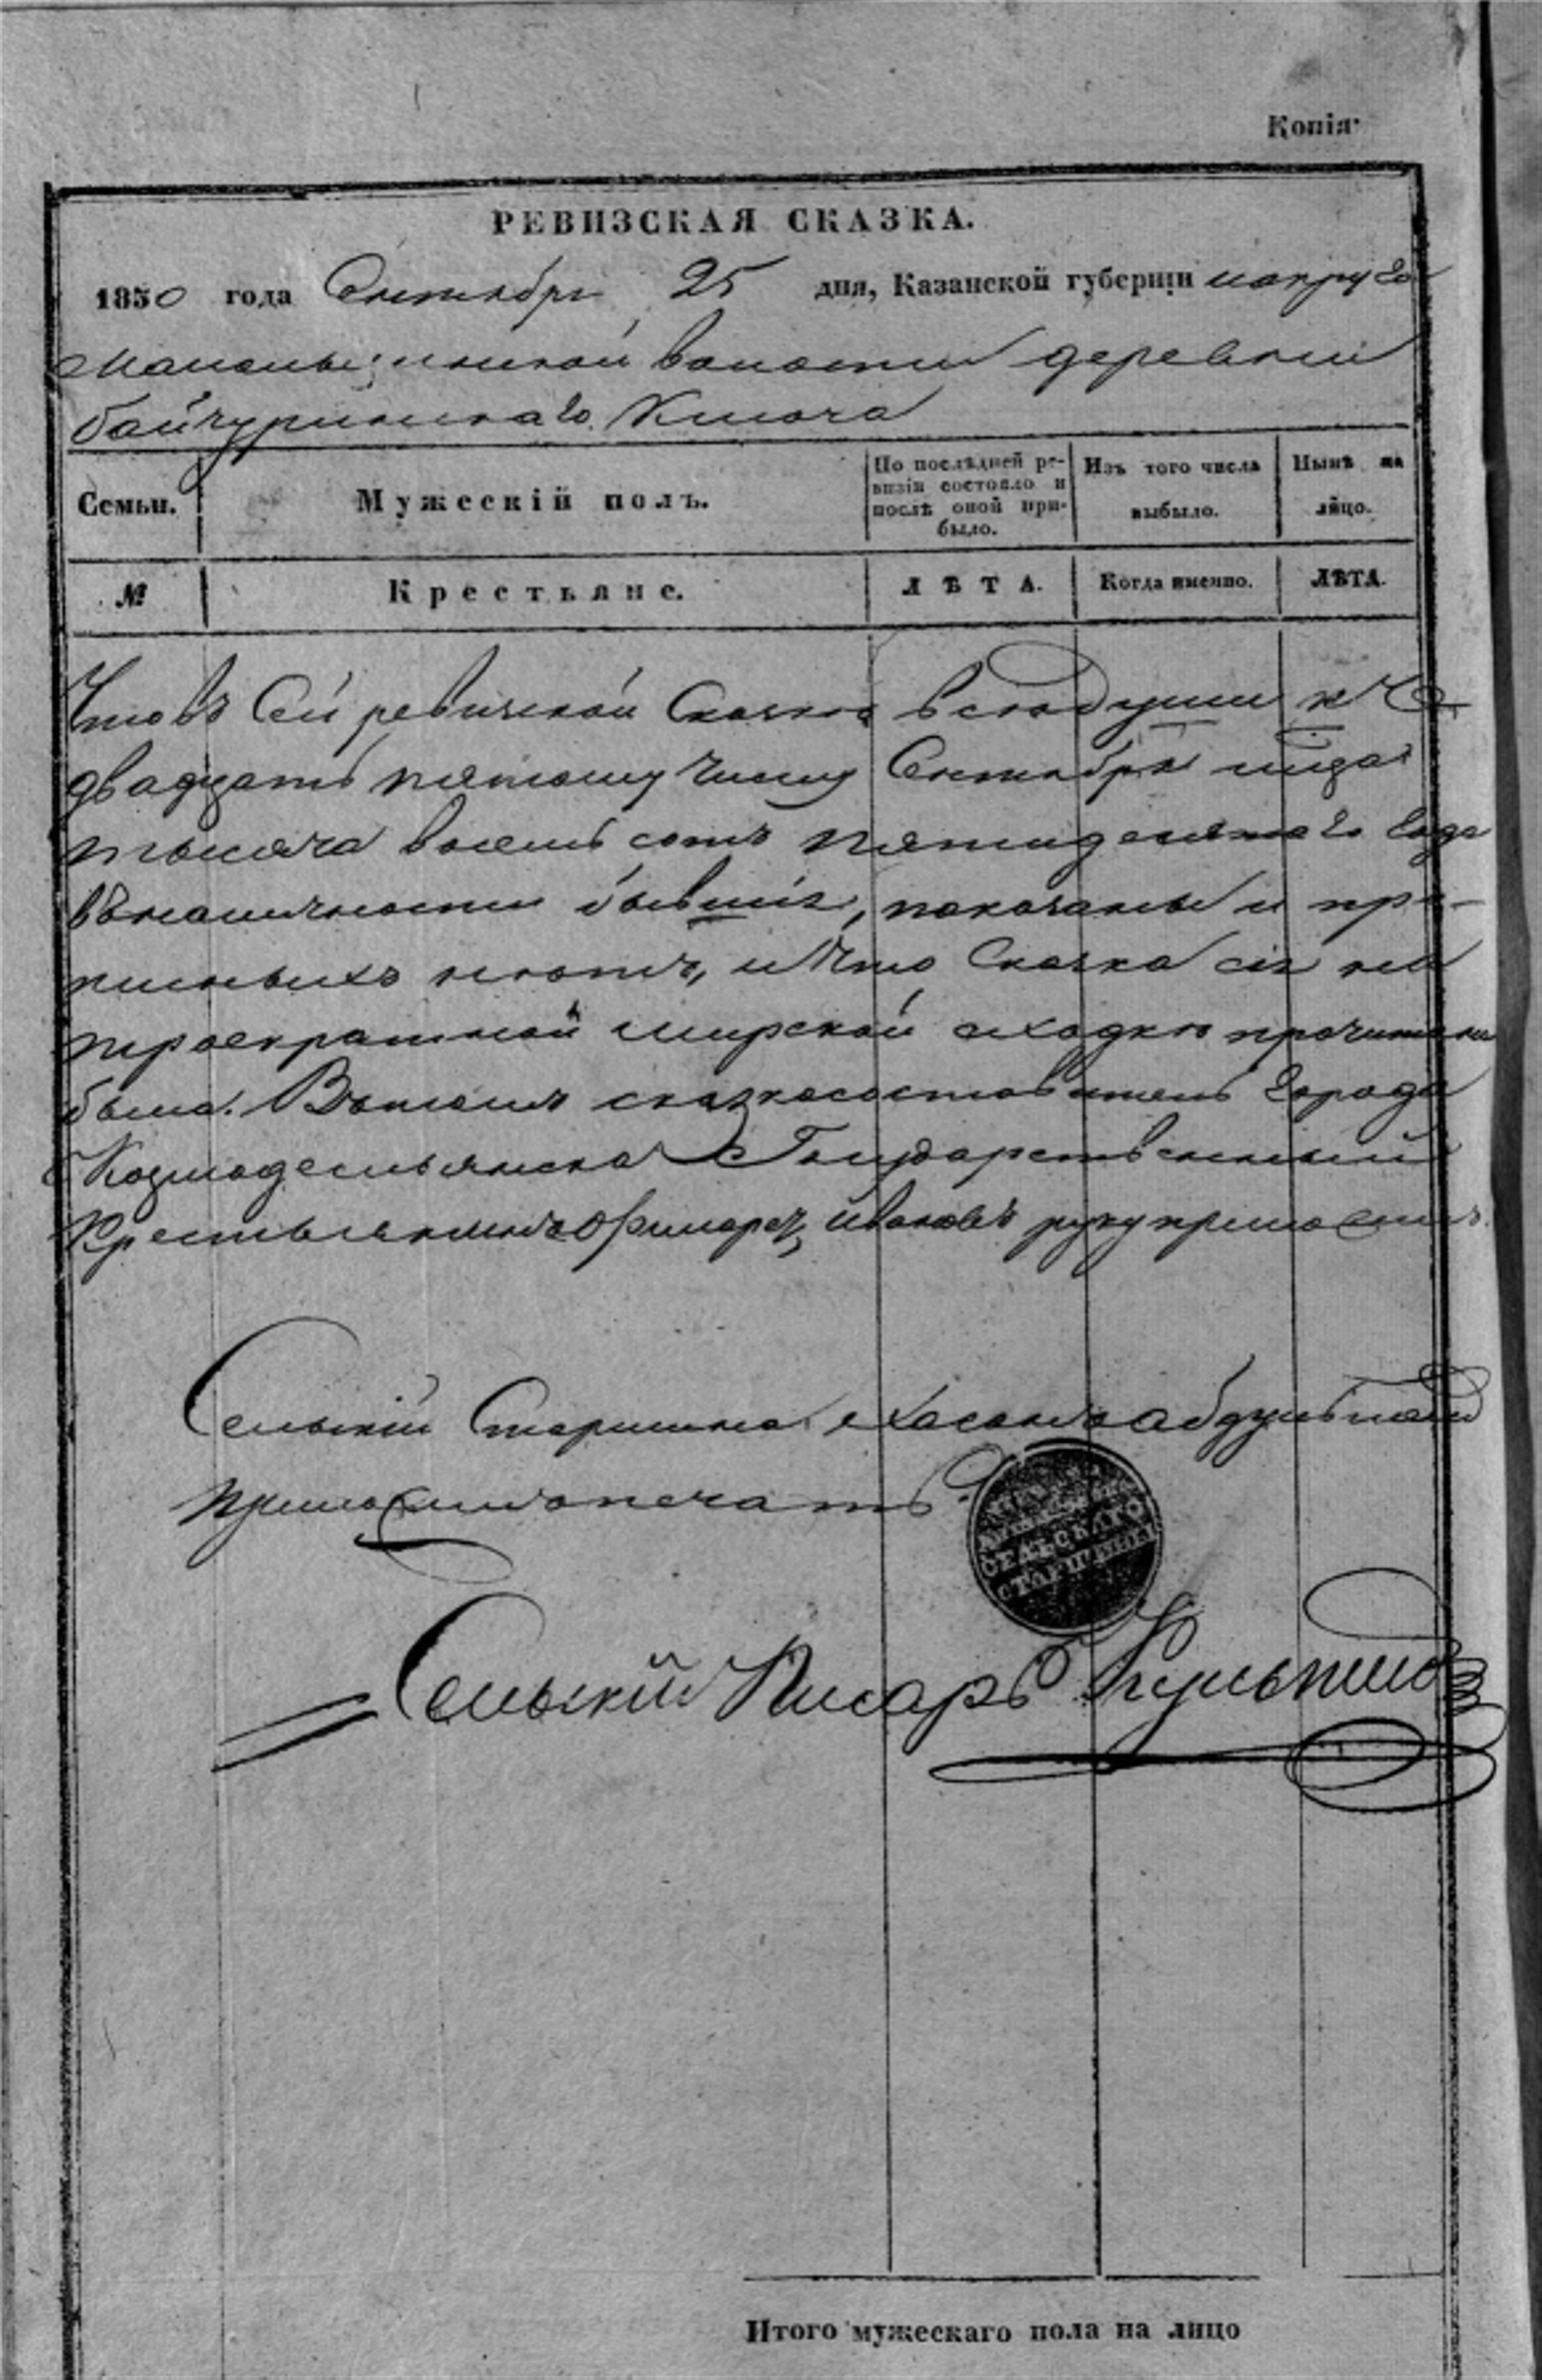 Копія
РЕВИЗСКАЯ СКАЗКА.
1850 года Сентября 25 дня, Казанской губерніи
волости деревни
байчуринскаго Ключа
Семьи. Мужескій полъ. По послѣдней ре-визіи состояло и послѣ оной при-было. Изъ того числа выбыло. Нынѣ на лицо.
№ Крестьяне. ЛѢТА. Когда именно. ЛѢТА.
Что въ Сей ревизской Сказкѣ всѣ души к
двадцать пятому числу Сентября
тысяча восемь сотъ пятидесятаго года
въ наличности бывшія, показаны и про-
писныхъ нѣтъ, и что Сказка сія на
троекратной мирской сходкѣ прочитана
была. В томъ сказкосоставитель города
Козмодемьянска Государственный
Крестьянинъ Ивановъ руку приложилъ
Сельскій Старшина Хасанъ
приложилъ печать
СЕЛЬСКАГО
СТАРШИНЫ
Сельскій Писарь
Итого мужескаго пола на лицо